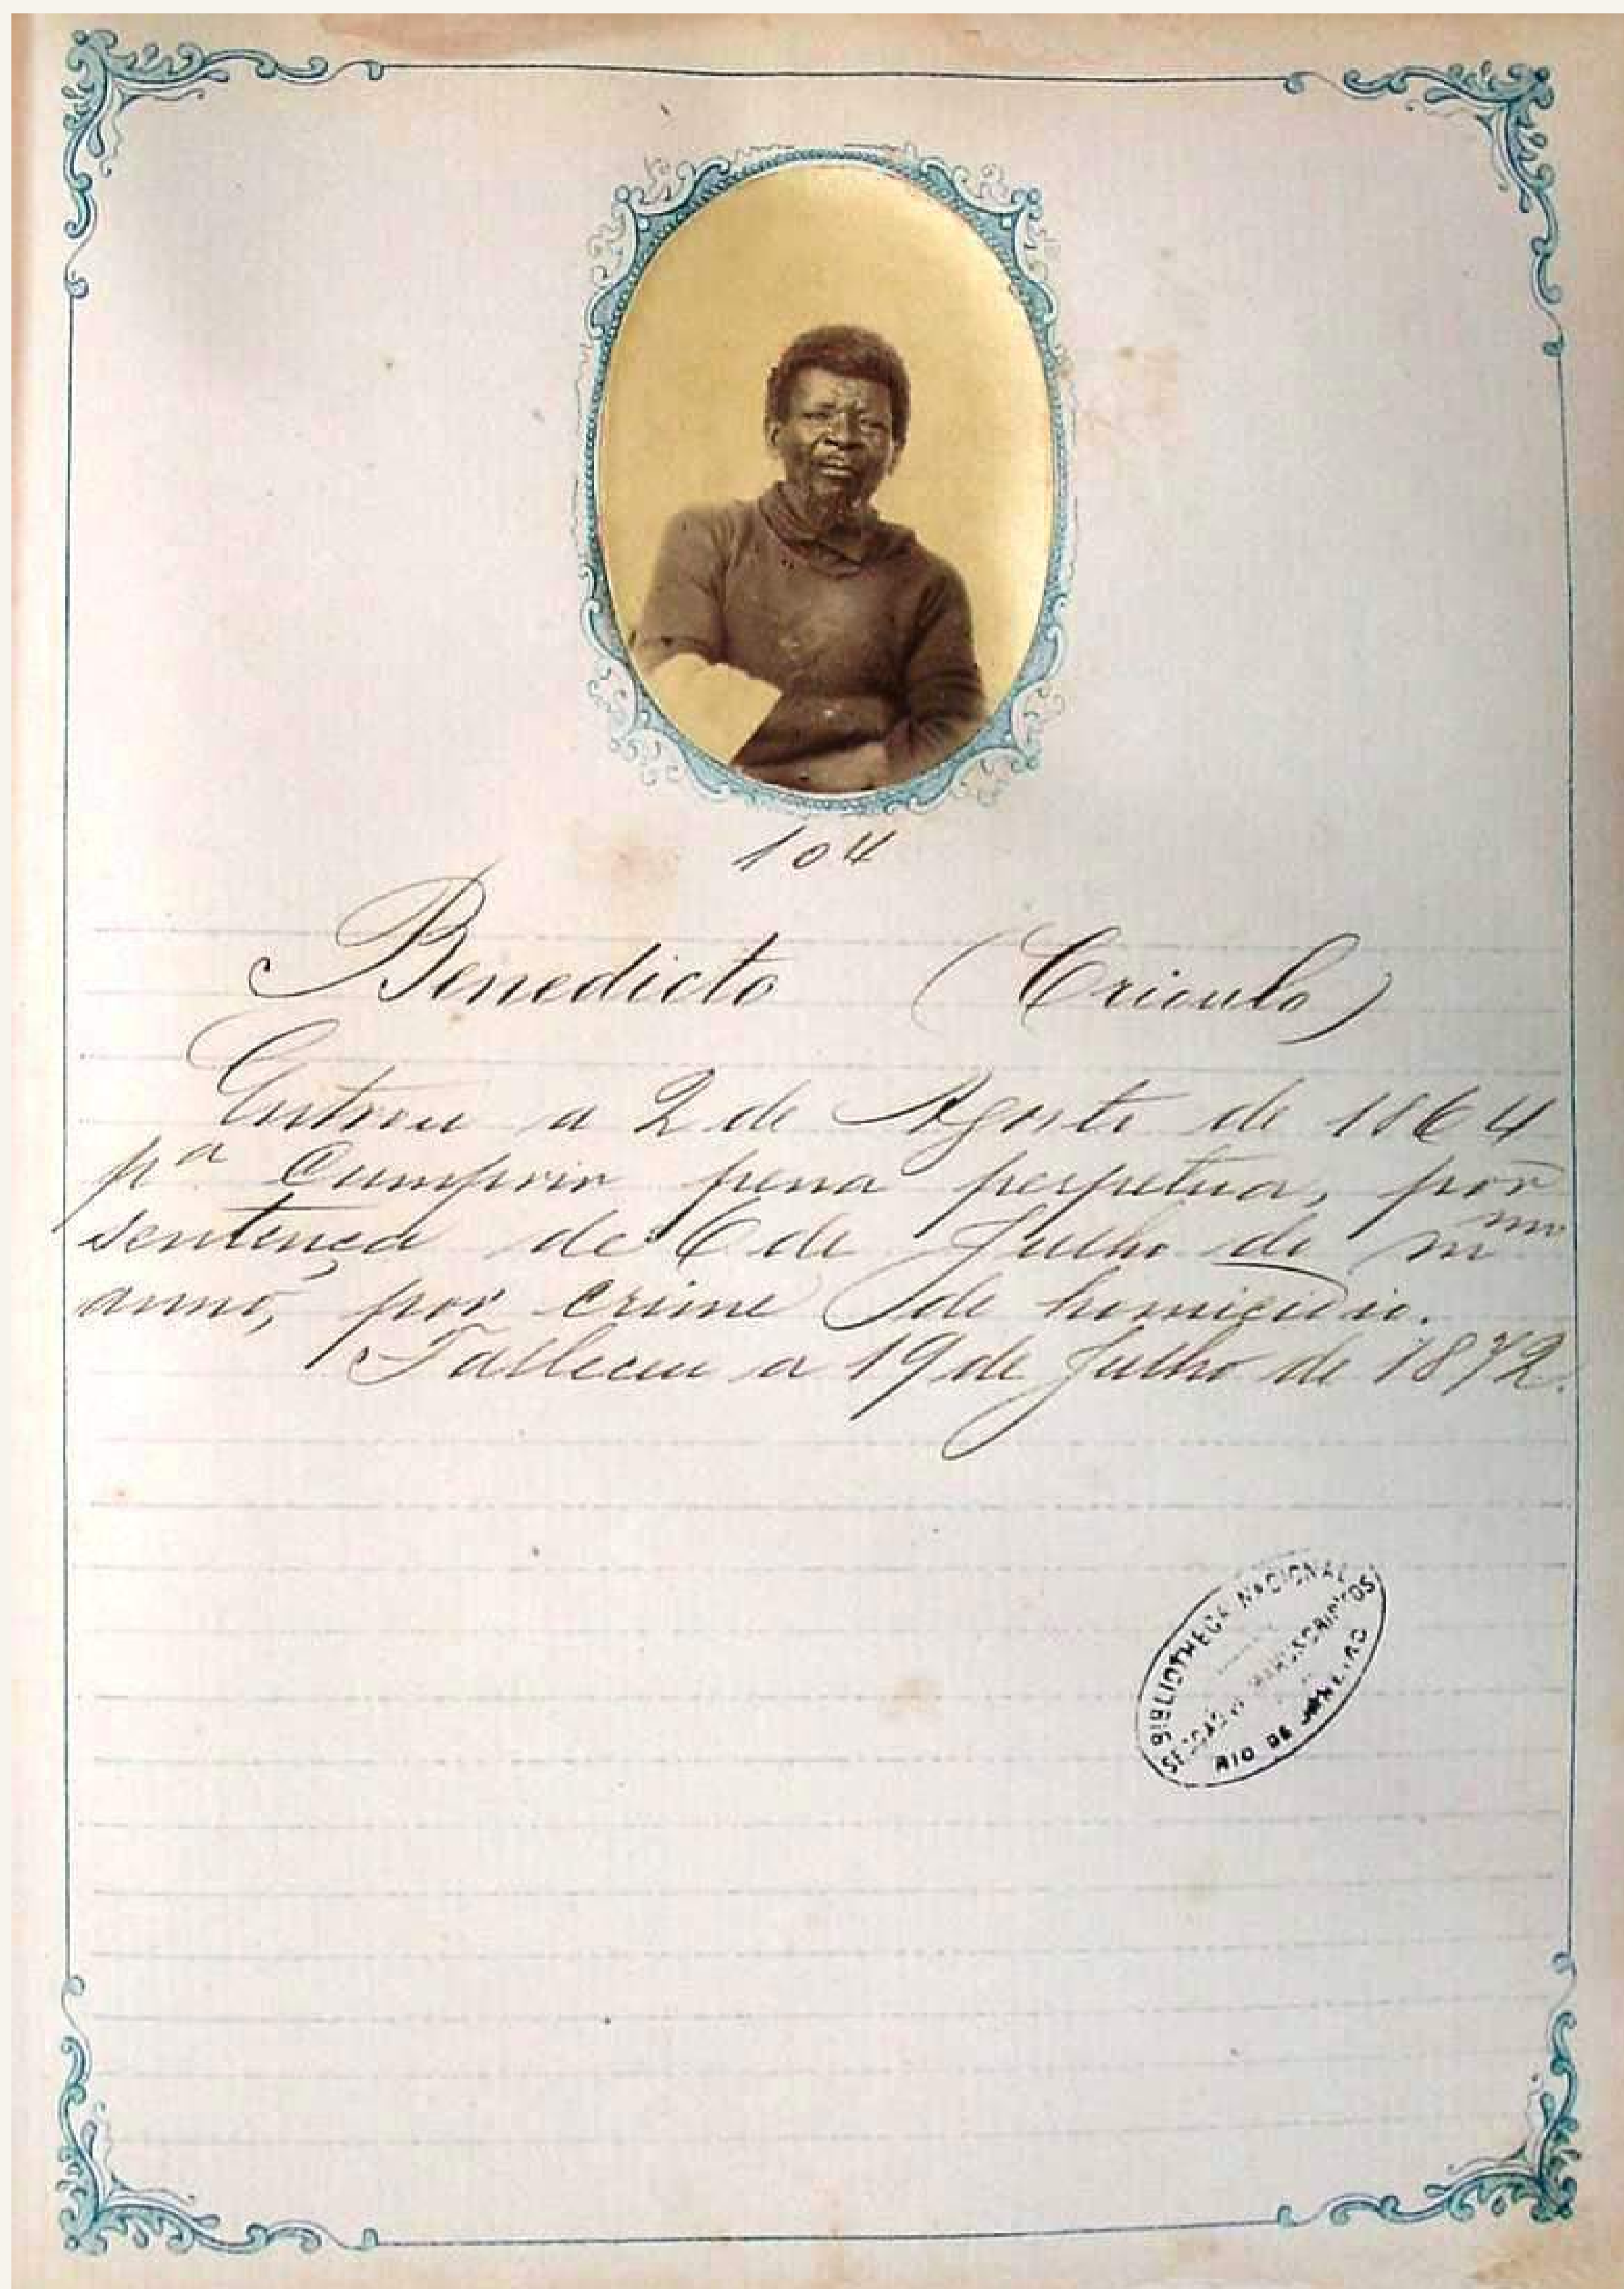 104
Benedicto (Crioulo)
Entrou a 2 de Agosto de 1864
pª Cumprir pena perpetua, por
sentença de 6 de Julho de mmo
anno, por crime de homicidio.
Falleceu a 19 de Julho de 1872.
BIBLIOTHECA NACIONAL
SECÇÃO DE MANUSCRIPTOS
RIO DE JANEIRO